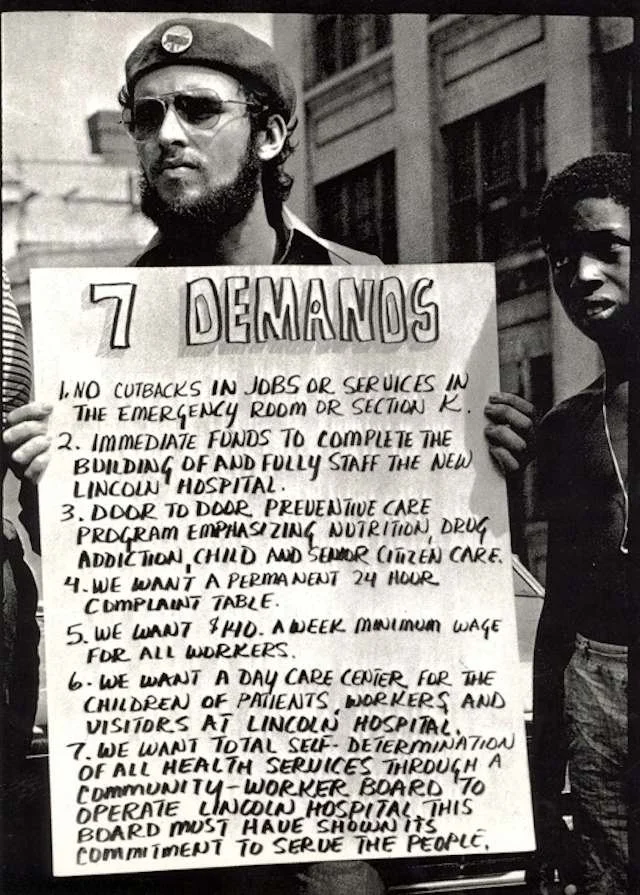 7 DEMANDS
1. NO CUTBACKS IN JOBS OR SERVICES IN
THE EMERGENCY ROOM OR SECTION K.
2. IMMEDIATE FUNDS TO COMPLETE THE
BUILDING OF AND FULLY STAFF THE NEW
LINCOLN HOSPITAL.
3. DOOR TO DOOR PREVENTIVE CARE
PROGRAM EMPHASIZING NUTRITION, DRUG
ADDICTION, CHILD AND SENIOR CITIZEN CARE.
4. WE WANT A PERMANENT 24 HOUR
COMPLAINT TABLE.
5. WE WANT $140. A WEEK MINIMUM WAGE
FOR ALL WORKERS.
6- WE WANT A DAY CARE CENTER FOR THE
CHILDREN OF PATIENTS, WORKERS AND
VISITORS AT LINCOLN HOSPITAL.
7. WE WANT TOTAL SELF-DETERMINATION
OF ALL HEALTH SERVICES THROUGH A
COMMUNITY-WORKER BOARD TO
OPERATE LINCOLN HOSPITAL. THIS
BOARD MUST HAVE SHOWN ITS
COMMITMENT TO SERVE THE PEOPLE.